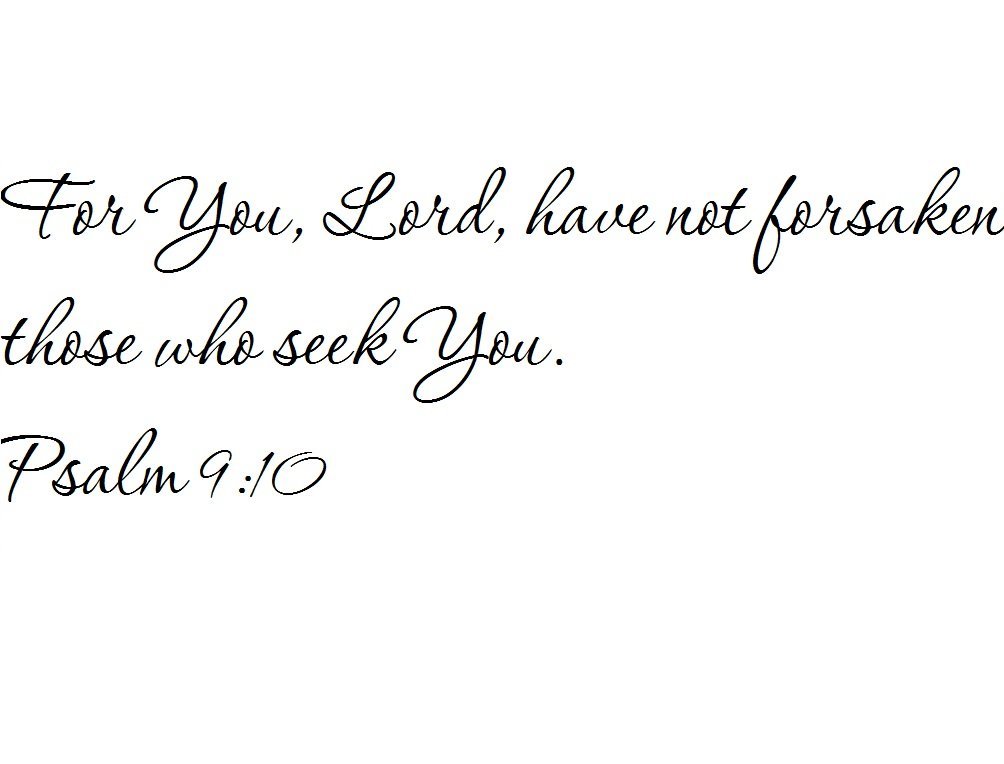 For You, Lord, have not forsaken
those who seek You.
Psalm 9:10